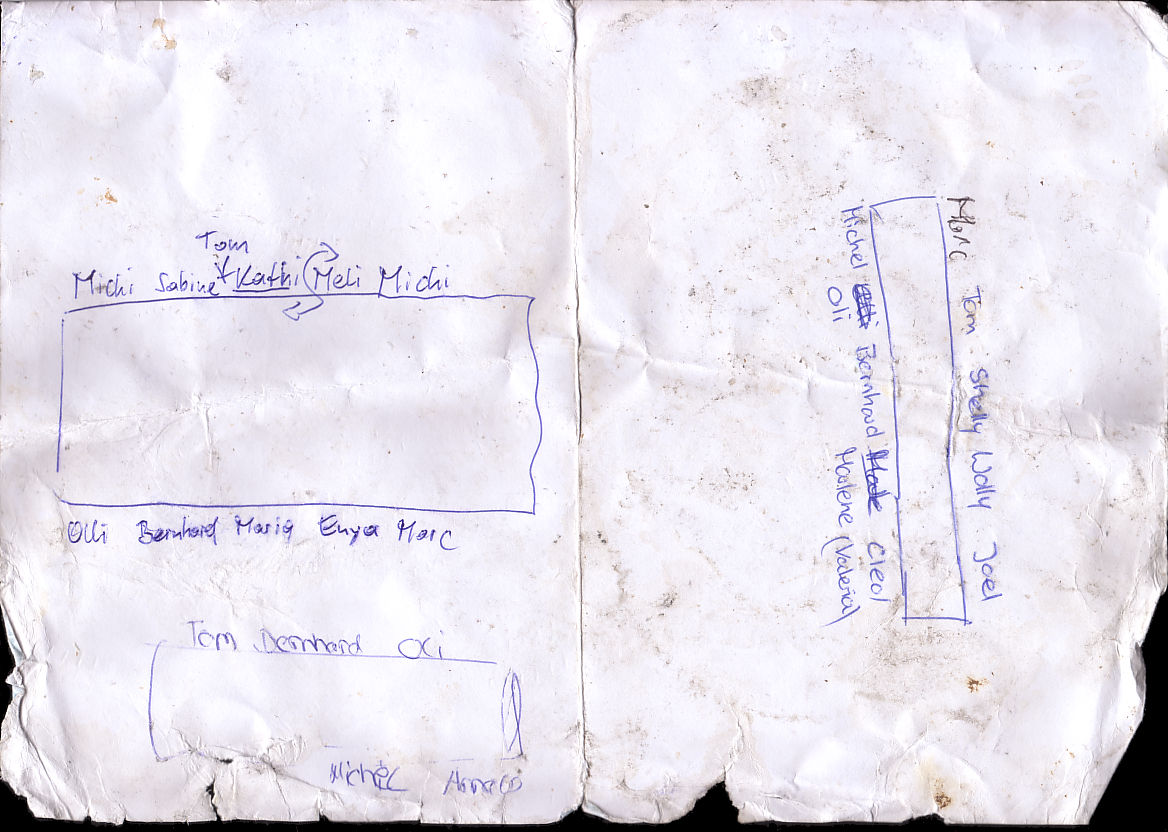 Tom
Michi Sabine Kathi Meli Michi
Olli Bernhard Maria Enya Marc
Tom Bernhard Oli
Michel
Marc Tom Shelly Wolly Joel
Michel Bernhard Cleo
Oli Marlene (Valeria)